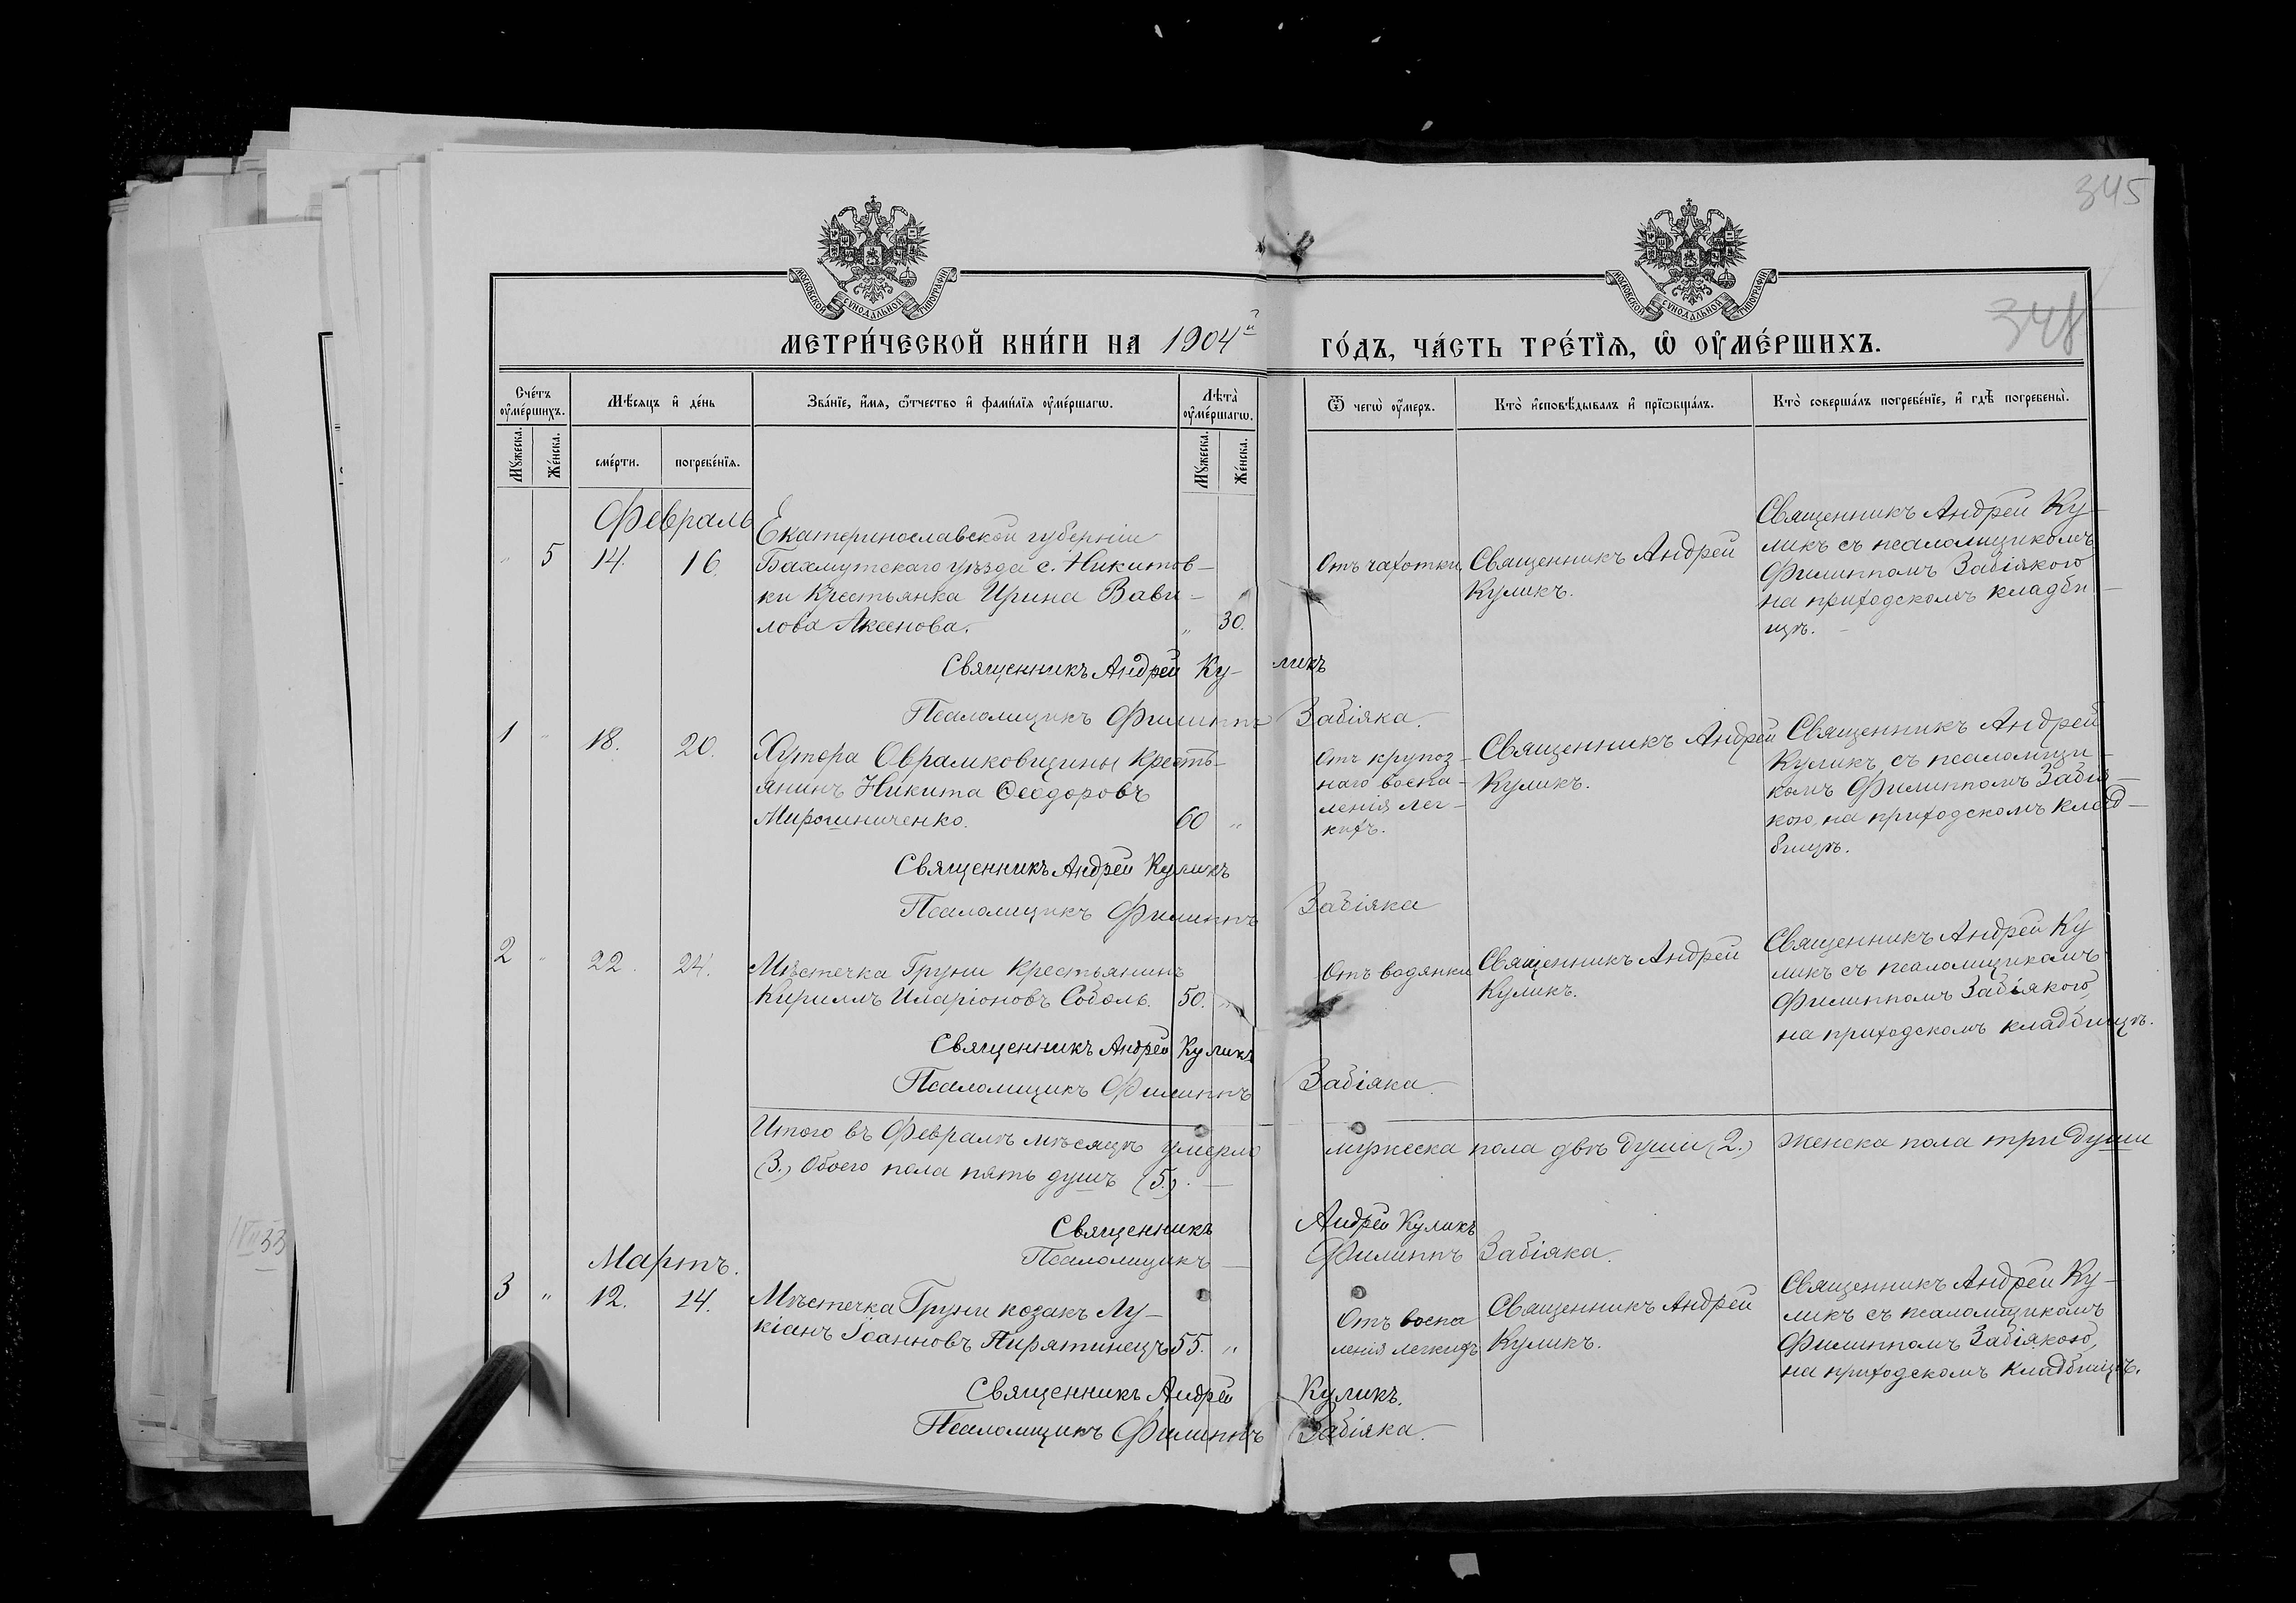 345
348
МОСКОВСКОЙ СѴНОДАЛЬНОЙ ТИПОГРАФІИ
МОСКОВСКОЙ СѴНОДАЛЬНОЙ ТИПОГРАФІИ
МЕТРИ́ЧЕСКОЙ КНИ́ГИ НА 1904й ГО́ДЪ, ЧА́СТЬ ТРЕ́ТЇѦ, Ѡ҆ ОУ҆МЕ́РШИХЪ.
Сче́тъ оу҆ме́ршихъ.
Мѣ́сяцъ и҆ де́нь
Зва́нїе, и҆́мя, ѻ҆́тчество и҆ фами́лїя оу҆ме́ршагѡ.
Лѣ́та оу҆ме́ршагѡ.
Ѿ чегѡ̀ оу҆́меръ.
Кто̀ и҆сповѣ́дывалъ и҆ прїѡбща́лъ.
Кто̀ соверша́лъ погребе́нїе, и҆ гдѣ̀ погребены̀.
Мꙋ́жеска.
Же́нска.
сме́рти.
погребе́нїя.
Мꙋ́жеска.
Же́нска.
Февраль
" 5 14. 16.
Екатеринославской губерніи
Бахмутскаго уѣзда с. Никитов-
ки Крестьянка Ирина Вави-
лова Аксенова. " 30.
Отъ чахотки
Священникъ Андрей
Куликъ.
Священникъ Андрей Ку-
ликъ съ псаломщикомъ
Филиппомъ Забіякого
на приходскомъ кладби-
щѣ.
Священникъ Андрей Куликъ
Псаломщикъ Филиппъ Забіяка.
1 " 18. 20.
Хутора Обрамковщины Кресть-
янинъ Никита Ѳеодоровъ
Мирошниченко. 60 "
Отъ крупоз-
наго воспа-
ленія лег-
кихъ.
Священникъ Андрей
Куликъ.
Священникъ Андрей
Куликъ съ псаломщи-
комъ Филиппомъ Забія-
кою, на приходскомъ клад-
бищѣ.
Священникъ Андрей Куликъ
Псаломщикъ Филиппъ Забіяка
2 " 22. 24.
Мѣстечка Груни Крестьянинъ
Кириллъ Иларіоновъ Соболь. 50. "
Отъ водянки
Священникъ Андрей
Куликъ.
Священникъ Андрей Ку
ликъ съ псаломщикомъ
Филиппомъ Забіякого,
на приходскомъ кладбищѣ.
Священникъ Андрей Куликъ
Псаломщикъ Филиппъ Забіяка
Итого въ Февралѣ мѣсяцѣ умерло мужеска пола двѣ души (2.) женска пола три души
(3.) Обоего пола пять душъ (5.).
Священникъ Андрей Куликъ
Псаломщикъ Филиппъ Забіяка.
Мартъ.
3 " 12. 14.
Мѣстечка Груни козакъ Лу-
кіанъ Іоанновъ Пирятинецъ 55. "
Отъ воспа
ленія легкихъ
Священникъ Андрей
Куликъ.
Священникъ Андрей Ку-
ликъ съ псаломщикомъ
Филиппомъ Забіякого,
на приходскомъ кладбищѣ.
Священникъ Андрей Куликъ.
Псаломщикъ Филиппъ Забіяка.